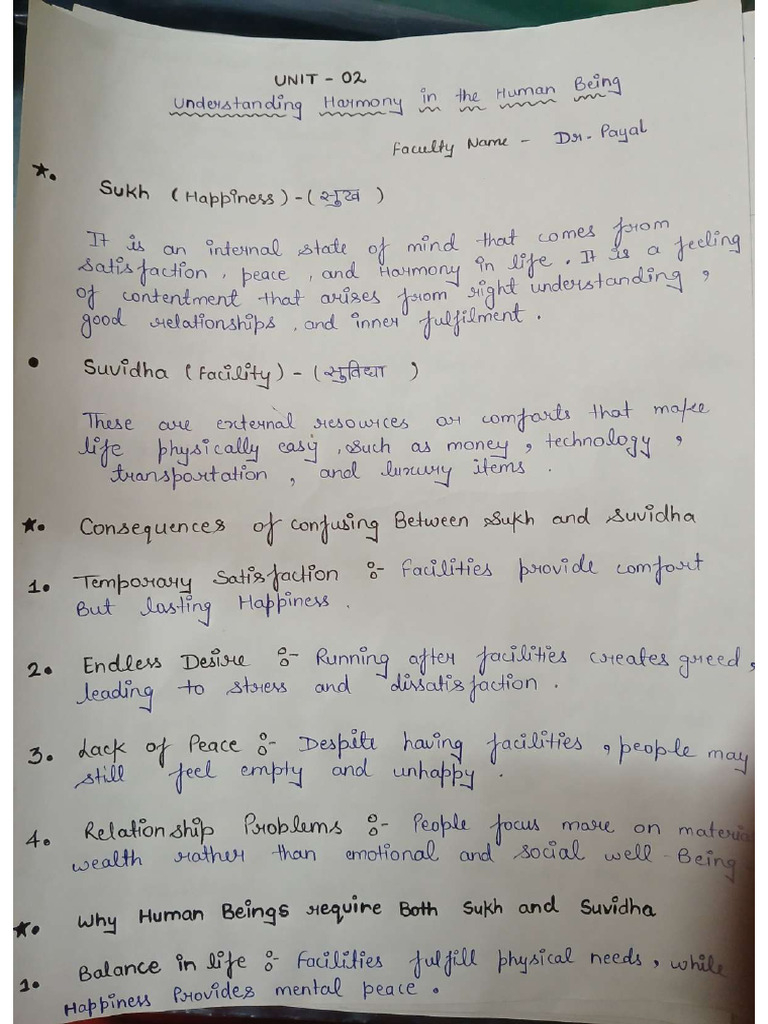 UNIT - 02
Understanding Harmony in the Human Being
Faculty Name - Dr. Payal
★. Sukh (Happiness) - (सुख )
It is an internal state of mind that comes from
satisfaction, peace, and Harmony in life. It is a feeling
of contentment that arises from right understanding,
good relationships, and inner fulfilment.
• Suvidha (Facility) - (सुविधा )
These are external resources or comforts that make
life physically easy, such as money, technology,
transportation, and luxury items.
★. Consequences of confusing Between Sukh and Suvidha
1. Temporary Satisfaction :- Facilities provide comfort
But lasting Happiness.
2. Endless Desire :- Running after facilities creates greed,
leading to stress and dissatisfaction.
3. Lack of Peace :- Despite having facilities, people may
still feel empty and unhappy.
4. Relationship Problems :- People focus more on materia
wealth rather than emotional and social well-Being.
★. Why Human Beings require Both Sukh and Suvidha
1. Balance in life :- Facilities fulfill physical needs, while
Happiness Provides mental peace.